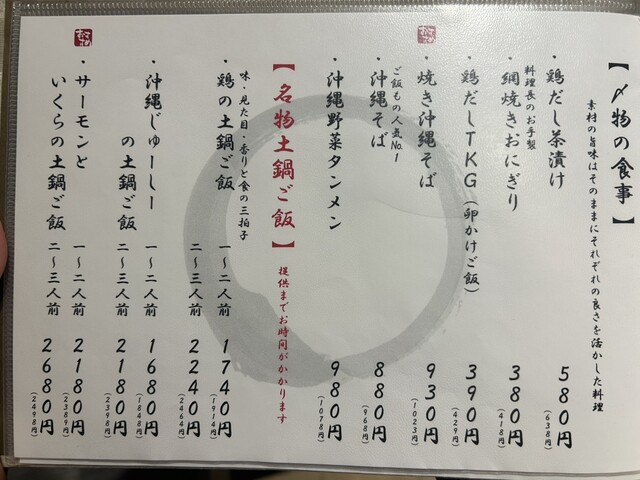 【〆物の食事】
素材の旨味はそのままにそれぞれの良さを活かした料理
・鶏だし茶漬け 580円
(638円)
料理長のお手製
・網焼きおにぎり 380円
(418円)
・鶏だしTKG(卵かけご飯) 390円
(429円)
おすすめ
・焼き沖縄そば 930円
(1023円)
ご飯もの人気No.1
・沖縄そば 880円
(968円)
・沖縄野菜タンメン 980円
(1078円)
【名物土鍋ご飯】提供までお時間がかかります
味・見た目・香りと食の三拍子
・鶏の土鍋ご飯 一〜二人前 1740円
(1914円)
二〜三人前 2240円
(2464円)
・沖縄じゅーしー 一〜二人前 1680円
(1848円)
の土鍋ご飯 二〜三人前 2180円
(2398円)
おすすめ
・サーモンと 一〜二人前 2180円
(2389円)
いくらの土鍋ご飯 二〜三人前 2680円
(2498円)